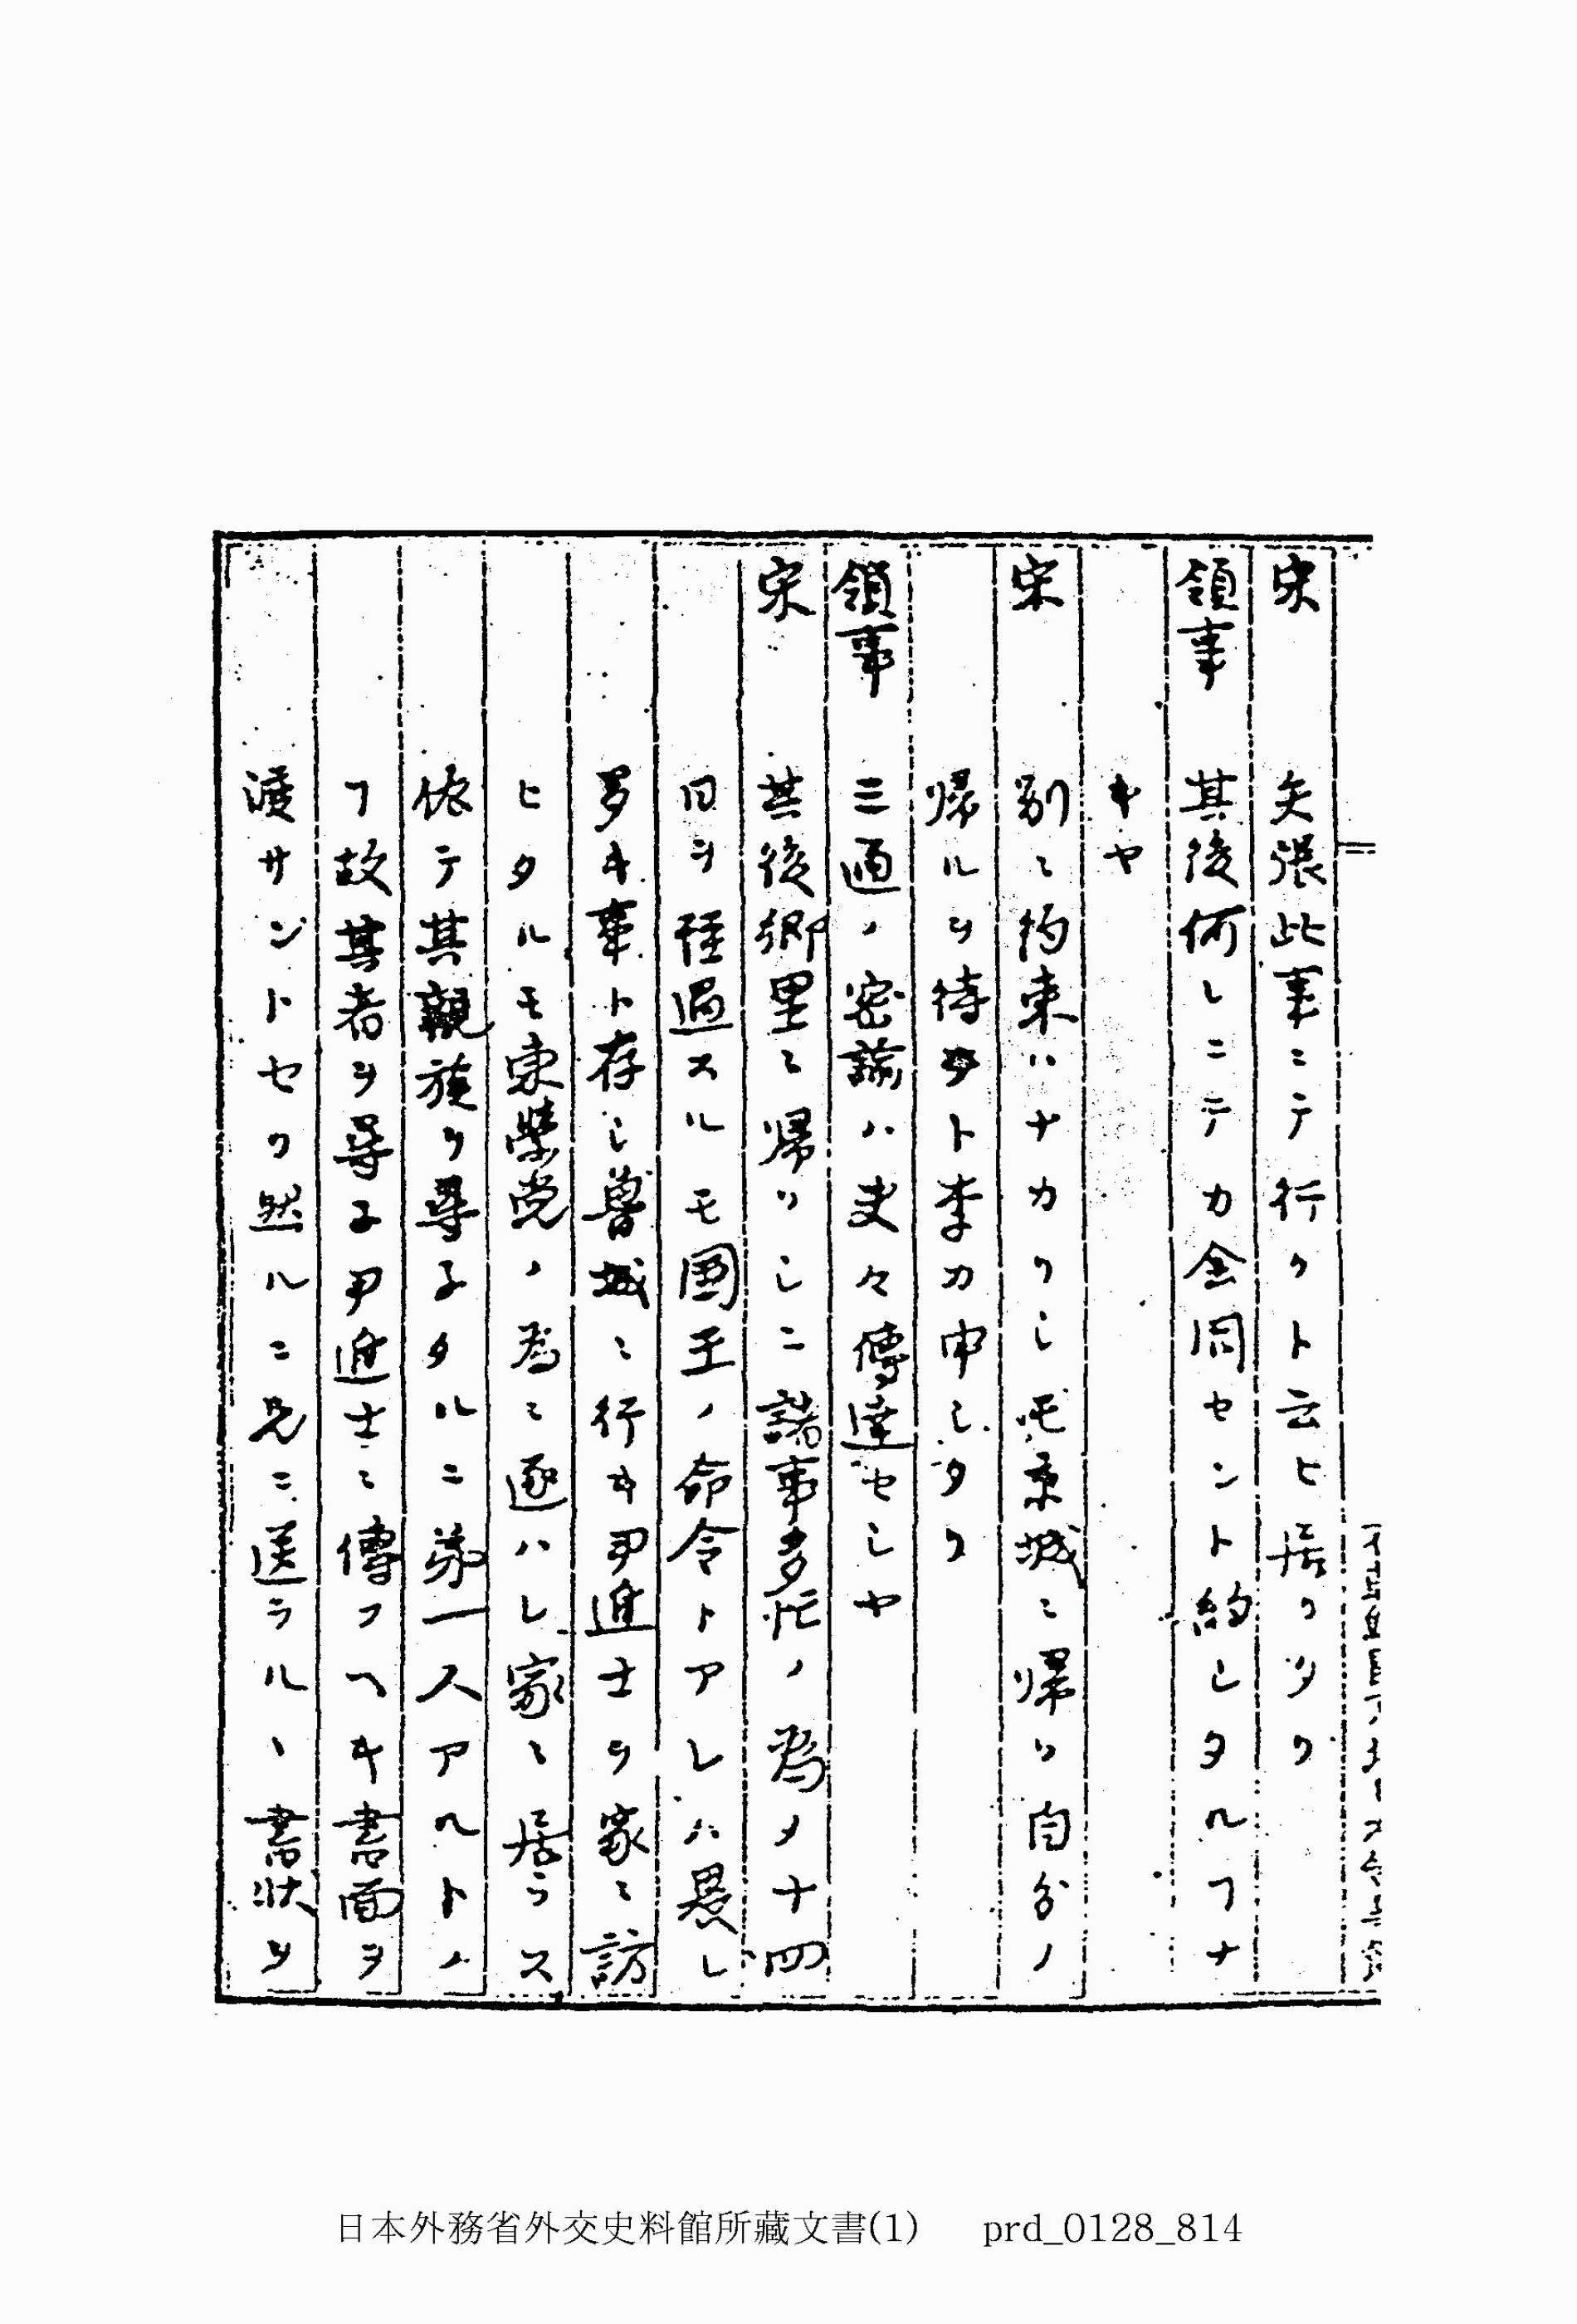 宋　矢張此事ニテ行クト云ヒ居リタリ
領事　其後何レニテカ会同セント約シタルヿナ
キヤ
宋　別ニ約束ハナカリシ ... 京城ニ帰リ自分ノ
帰ルヲ待ツト李カ申シタリ
領事　三通ノ密諭ハ夫々傳達セシヤ
宋　其後郷里ニ帰リシニ諸事多忙ノ為メ十四
日ヲ経過スルモ國王ノ命令トアレハ畏レ
多キ事ト存シ ... 城ニ行キ尹進士ヲ家ニ訪
ヒタルモ東學党ノ為ニ逐ハレ家ニ居ラス
依テ其親族ヲ尋子タルニ弟一人アルトノ
ヿ故其者ヲ尋子尹進士ニ傳フヘキ書面ヲ
渡サントセリ然ルニ兄ニ送ラル丶書状ヲ
日本外務省外交史料館所藏文書(1)　prd_0128_814